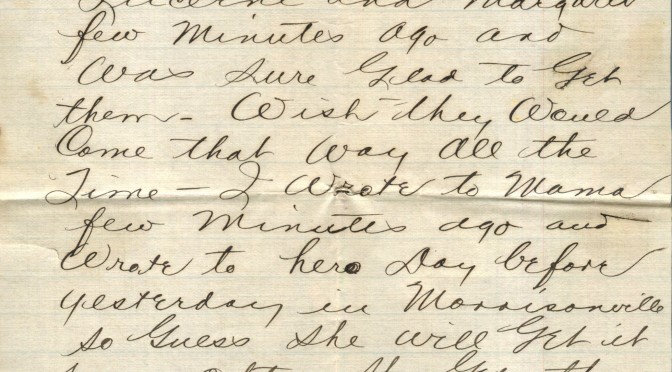 Lucerne and Margaret
few Minutes ago and
Was sure Glad to Get
them - Wish they Would
Come that Way All the
Time - I Wrote to Mama
few Minutes ago and
Wrote to here Day before
yesterday in Morrisonville
so Guess she will Get it